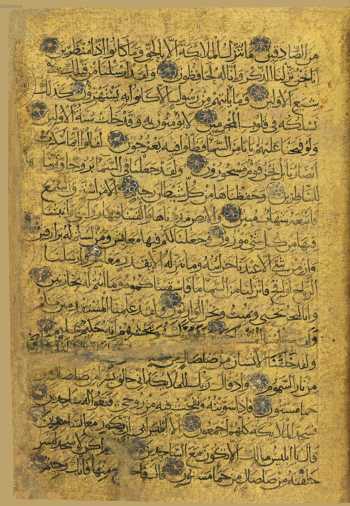 من الصادقين ما ننزل الملائكة الا بالحق وما كانوا اذا منظرين
انا نحن نزلنا الذكر وانا له لحافظون ولقد ارسلنا من قبلك في
شيع الاولين وما ياتيهم من رسول الا كانوا به يستهزؤن كذلك
نسلكه في قلوب المجرمين لا يؤمنون به وقد خلت سنة الاولين
ولو فتحنا عليهم بابا من السماء فظلوا فيه يعرجون لقالوا انما سكرت
ابصارنا بل نحن قوم مسحورون ولقد جعلنا في السماء بروجا وزيناها
للناظرين وحفظناها من كل شيطان رجيم الا من استرق السمع
فاتبعه شهاب مبين والارض مددناها والقينا فيها رواسي وانبتنا
فيها من كل شئ موزون وجعلنا لكم فيها معايش ومن لستم له برازقين
وان من شئ الا عندنا خزائنه وما ننزله الا بقدر معلوم وارسلنا
الرياح لواقح فانزلنا من السماء ماء فاسقيناكموه وما انتم له بخازنين
وانا لنحن نحيي ونميت ونحن الوارثون ولقد علمنا المستقدمين منكم
يحشرهم انه حكيم عليم
ولقد خلقنا الانسان من صلصال من
من نار السموم واذ قال ربك للملائكة اني خالق بشرا من صلصال من
حما مسنون فاذا سويته ونفخت فيه من روحي فقعوا له ساجدين
فسجد الملائكة كلهم اجمعون الا ابليس ابى ان يكون مع الساجدين
قال يا ابليس ما لك الا تكون مع الساجدين قال لم اكن لاسجد لبشر
خلقته من صلصال من حما مسنون قال فاخرج منها فانك رجيم